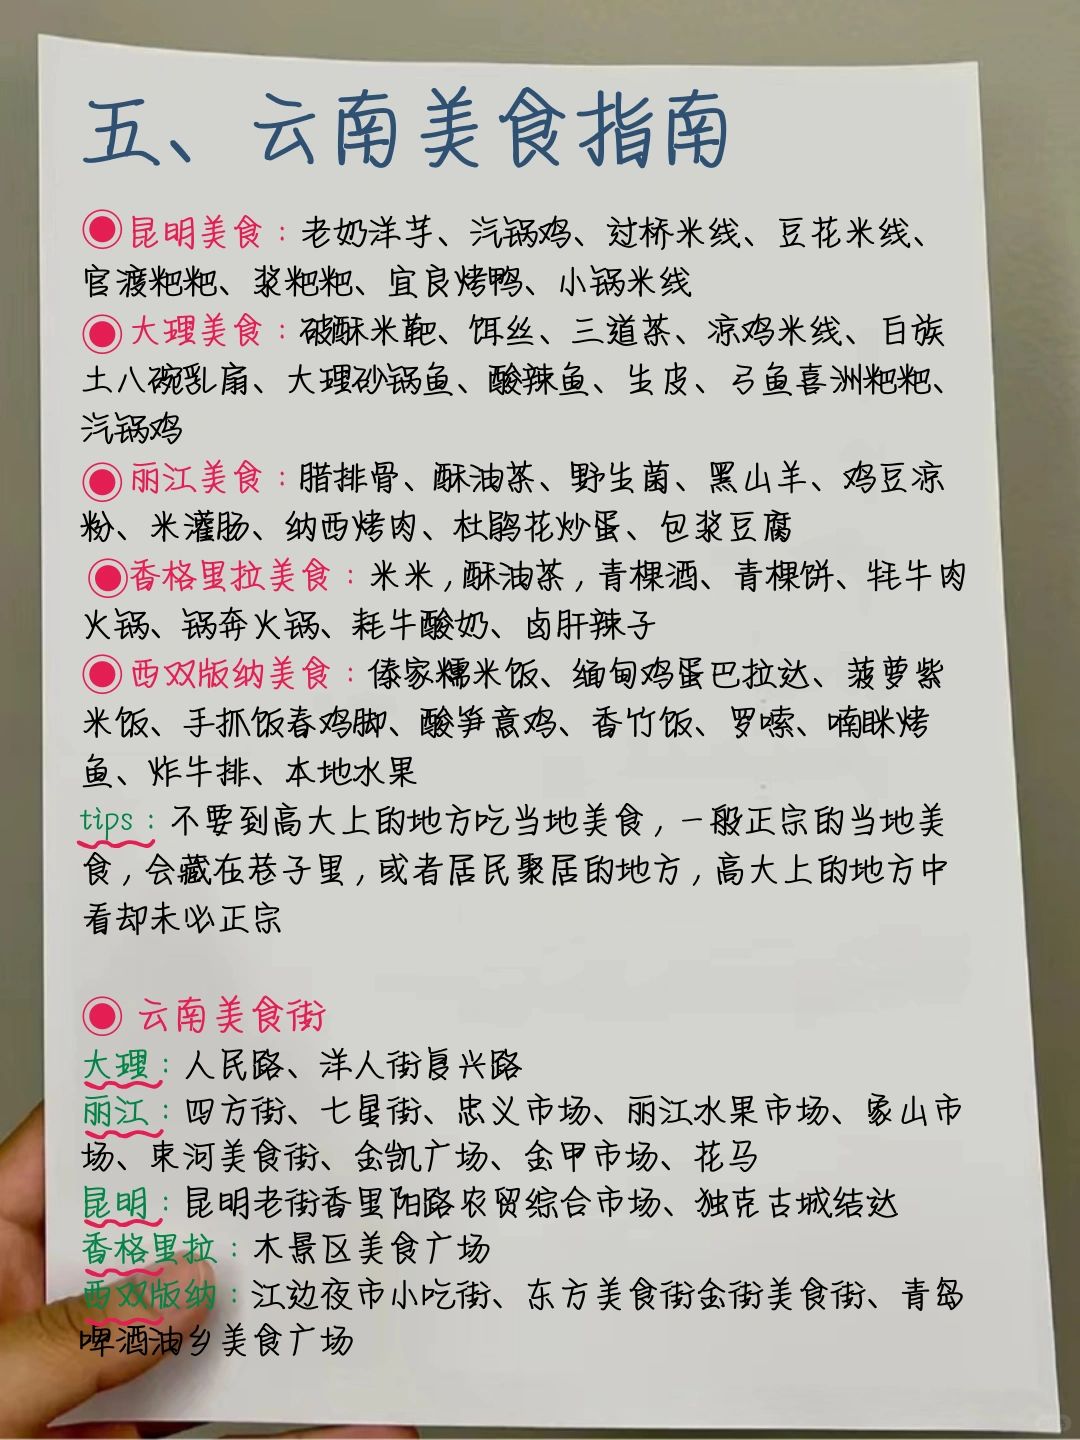 五、云南美食指南
昆明美食：老奶洋芋、汽锅鸡、过桥米线、豆花米线、
官渡粑粑、浆粑粑、宜良烤鸭、小锅米线
大理美食：破酥米粑、饵丝、三道茶、凉鸡米线、白族
土八碗乳扇、大理砂锅鱼、酸辣鱼、生皮、弓鱼喜洲粑粑、
汽锅鸡
丽江美食：腊排骨、酥油茶、野生菌、黑山羊、鸡豆凉
粉、米灌肠、纳西烤肉、杜鹃花炒蛋、包浆豆腐
香格里拉美食：米米，酥油茶，青稞酒、青稞饼、牦牛肉
火锅、锅奔火锅、耗牛酸奶、卤肝辣子
西双版纳美食：傣家糯米饭、缅甸鸡蛋巴拉达、菠萝紫
米饭、手抓饭春鸡脚、酸笋意鸡、香竹饭、罗嗦、喃眯烤
鱼、炸牛排、本地水果
tips：不要到高大上的地方吃当地美食，一般正宗的当地美
食，会藏在巷子里，或者居民聚居的地方，高大上的地方中
看却未必正宗
云南美食街
大理：人民路、洋人街复兴路
丽江：四方街、七星街、忠义市场、丽江水果市场、象山市
场、束河美食街、金凯广场、金甲市场、花马
昆明：昆明老街香里阳路农贸综合市场、独克古城结达
香格里拉：木景区美食广场
西双版纳：江边夜市小吃街、东方美食街金街美食街、青岛
啤酒油乡美食广场